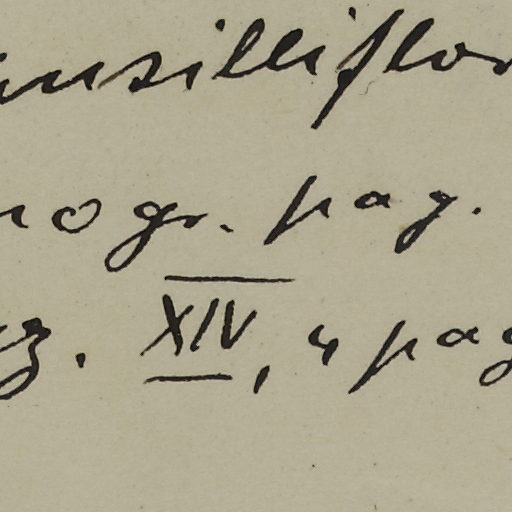 nusilliflor
nogr. pag.
g. XIV, 4 pag